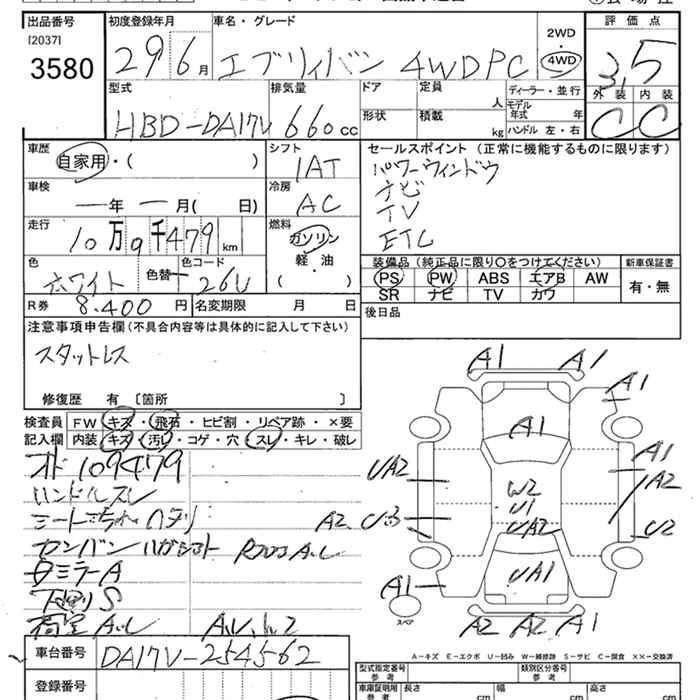 出品番号
[2037]
3580
初度登録年月
29 6月
車名・グレード
エブリィバン 4WD PC
2WD
・
4WD
評価点
3.5
外装 内装
C C
型式
HBD-DA17V
排気量
660cc
ドア
形状
定員
人
積載
kg
ディーラー・並行
モデル
年式 年
ハンドル 左・右
車歴
自家用・( )
シフト
1AT
セールスポイント (正常に機能するものに限ります)
パワーウィンドウ
ナビ
TV
ETC
車検
ー年 ー月( 日)
冷房
AC
走行
10万9千479km
燃料
ガソリン
軽・油
( )
色
ホワイト
色替
色コード
26U
装備品 (純正品に限り〇をつけてください)
PS PW ABS エアB AW
SR ナビ TV カワ
新車保証書
有・無
R券 8.400円
名変期限 月 日
後日品
注意事項申告欄(不具合内容等は具体的に記入して下さい)
スタットレス
修復歴 有 〔箇所 〕
検査員
記入欄
FW キズ・飛石・ヒビ割・リペア跡・×要
内装 キズ・汚レ・コゲ・穴・スレ・キレ・破レ
オド 109479
ハンドルスレ
カンバンハガシアト
ミラーA
下廻りS
荷室 A.U A.U.W2
A1 A1
A1
A1
A1
UA2
A2
W2
U1
UA2
A2
U2
UA1
A1
スペア
A2 A2 A1
A－キズ E－エクボ U－凹み W－補修跡 S－サビ C－腐食 ××－交換済
車台番号
DA17V-254562
登録番号
型式指定番号
参考
類別区分番号
参考
車庫証明用
参考
長さ
cm
幅
cm
高さ
cm